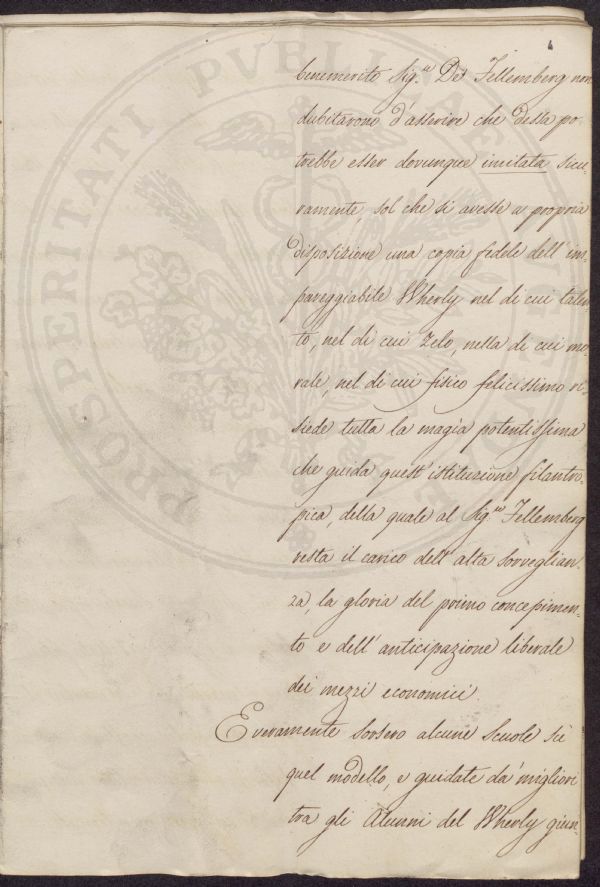 4
benemerito Sig.r De Fellemberg non
dubitarono d'asserire che dessa po-
trebbe esser dovunque imitata sicu-
ramente, sol che si avesse a propria
disposizione una copia fedele dell'im-
pareggiabile Wherly nel di cui talen-
to, nel di cui zelo, nella di cui mo-
rale, nel di cui fisico felicissimo ri-
siede tutta la magia potentissima
che guida quest'istituzione filantro-
pica, della quale al Sig.r Fellemberg
resta il carico dell'alta sorveglian-
za, la gloria del primo concepimen-
to e dell'anticipazione liberale
dei mezzi economici.
E veramente sorsero alcune Scuole su
quel modello, e guidate da' migliori
tra gli Alunni del Wherly giun-
PROSPERITATI PVBLICAE